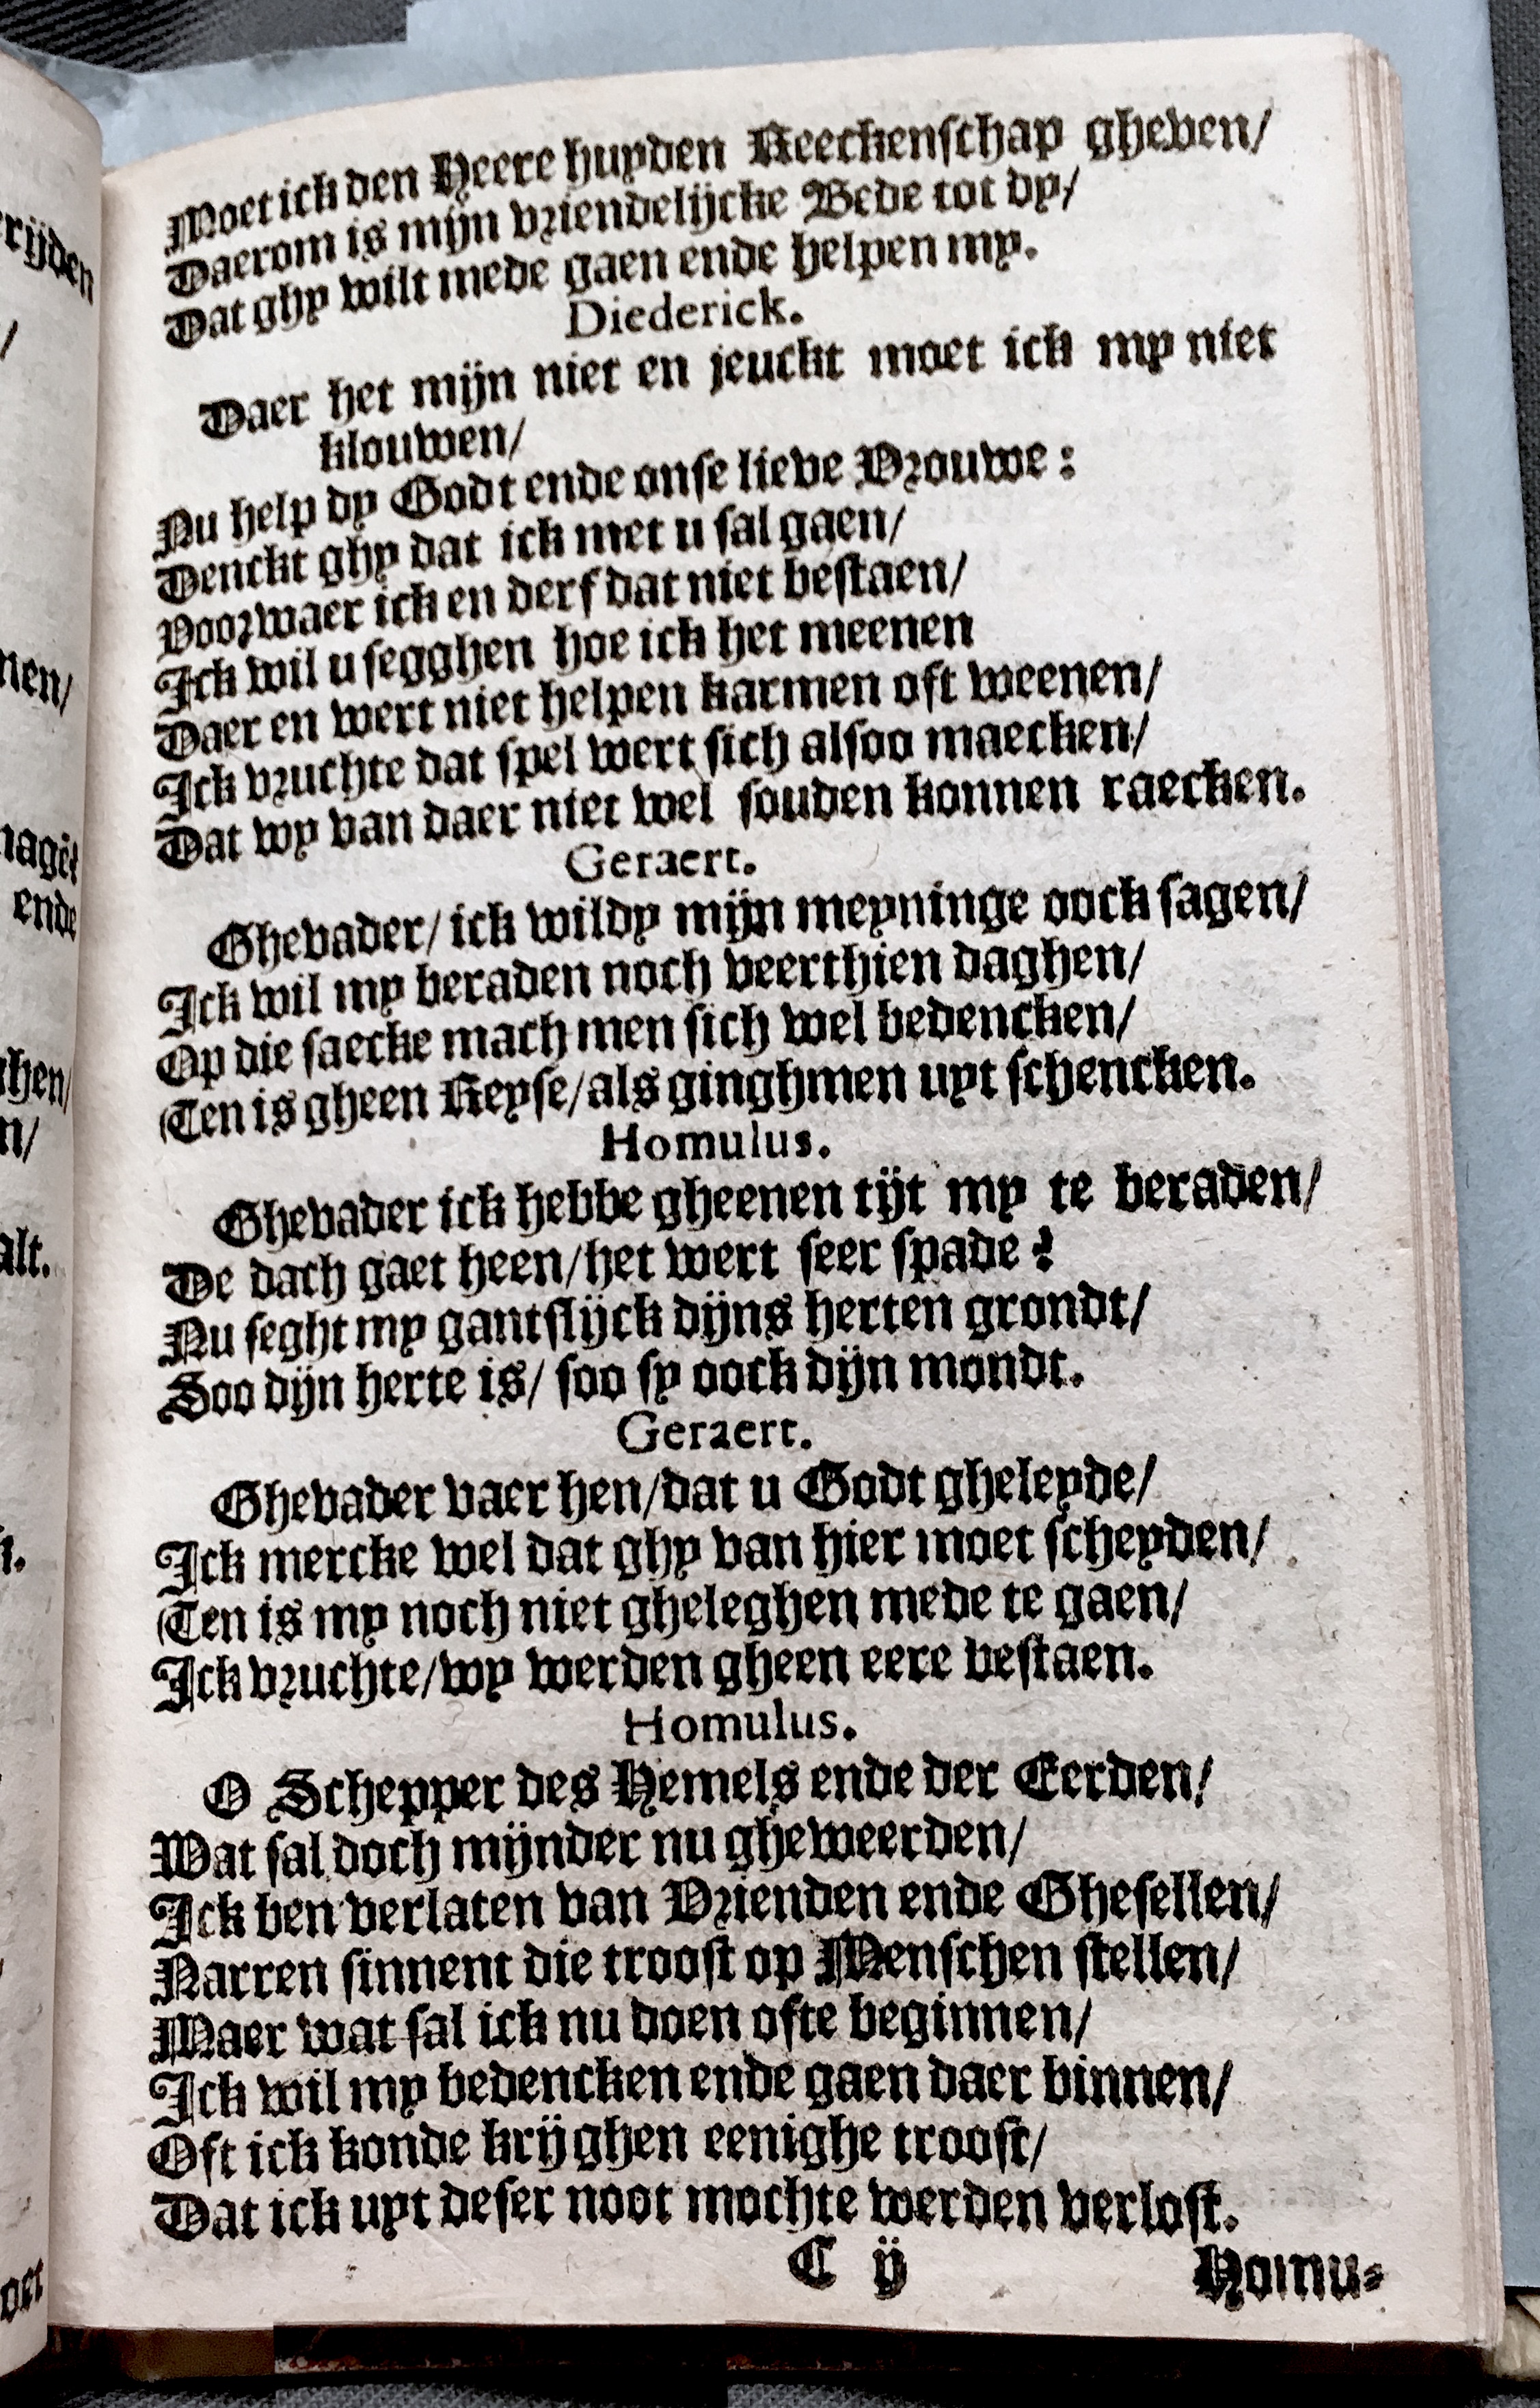 Moet ick den Heere huyden Reeckenschap gheven/
Daerom is mijn vriendelijcke Bede tot dy/
Dat ghy wilt mede gaen ende helpen my.
Diederick.
Daer het mijn niet en jeuckt moet ick my niet
klouwen/
Nu help dy Godt ende onse lieve Vrouwe:
Denckt ghy dat ick met u sal gaen/
Voorwaer ick en derf dat niet bestaen/
Ick wil u segghen hoe ick het meenen
Daer en wert niet helpen karmen oft weenen/
Ick vruchte dat spel wert sich alsoo maecken/
Dat wy van daer niet wel souden konnen raecken.
Geraert.
Ghevader/ ick wildy mijn meyninge oock sagen/
Ick wil my beraden noch veerthien daghen/
Op die saecke mach men sich wel bedencken/
Ten is gheen Reyse/als ginghmen uyt schencken.
Homulus.
Ghevader ick hebbe gheenen tijt my te beraden/
De dach gaet heen/het wert seer spade?
Nu seght my gantslijck dijns herten grondt/
Soo dijn herte is/ soo sy oock dijn mondt.
Geraert.
Ghevader vaer hen/dat u Godt gheleyde/
Ick mercke wel dat ghy van hier moet scheyden/
Ten is my noch niet gheleghen mede te gaen/
Ick vruchte/wy werden gheen eere bestaen.
Homulus.
O Schepper des Hemels ende der Eerden/
Wat sal doch mijnder nu gheweerden/
Ick ben verlaten van Vrienden ende Ghesellen/
Narren sinnent die troost op Menschen stellen/
Maer wat sal ick nu doen ofte beginnen/
Ick wil my bedencken ende gaen daer binnen/
Oft ick konde krijghen eenighe troost/
Dat ick uyt deser noot mochte werden verlost.
C ij
Homu-